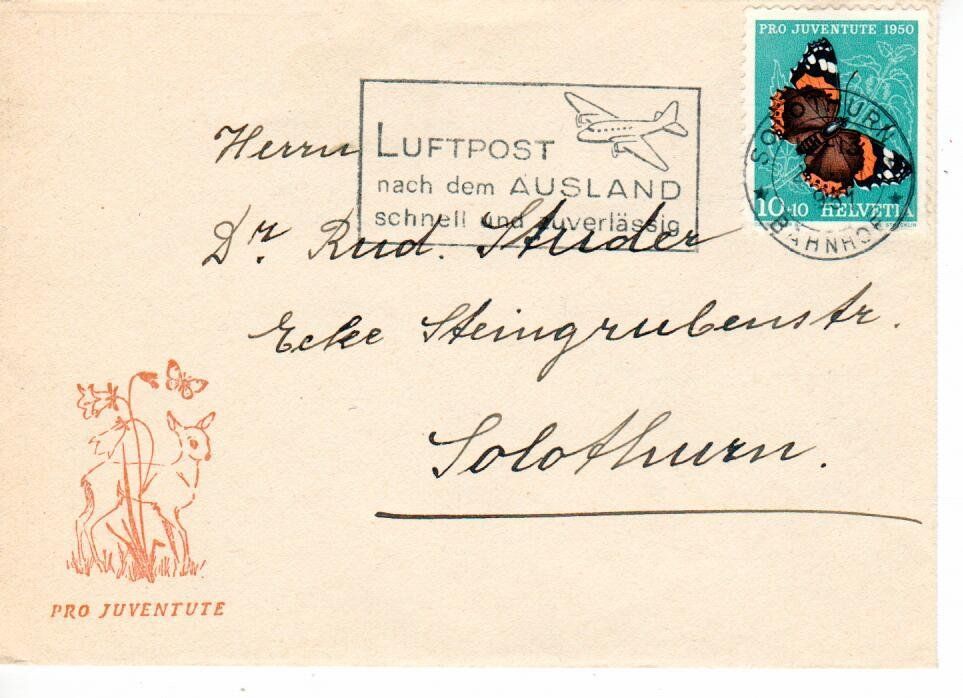 PRO JUVENTUTE 1950
10+10 HELVETIA
SOLOTHURN
BAHNHOF
LUFTPOST
nach dem AUSLAND
schnell und zuverlässig
Herrn
Dr. Rud. Studer
Ecke Steingrubenstr.
Solothurn.
PRO JUVENTUTE